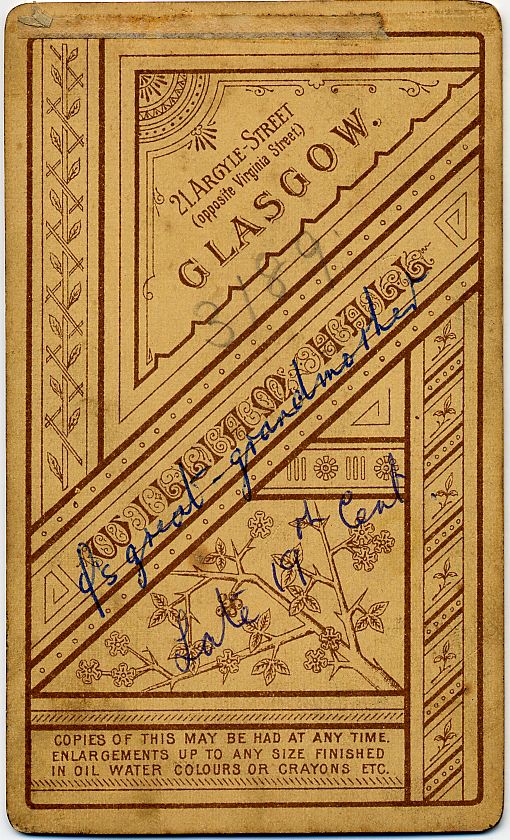 21 ARGYLE-STREET
(opposite Virginia Street)
GLASGOW.
3189
WILLIAM
great-grandmother
Late 19th Cent
COPIES OF THIS MAY BE HAD AT ANY TIME.
ENLARGEMENTS UP TO ANY SIZE FINISHED
IN OIL WATER COLOURS OR CRAYONS ETC.